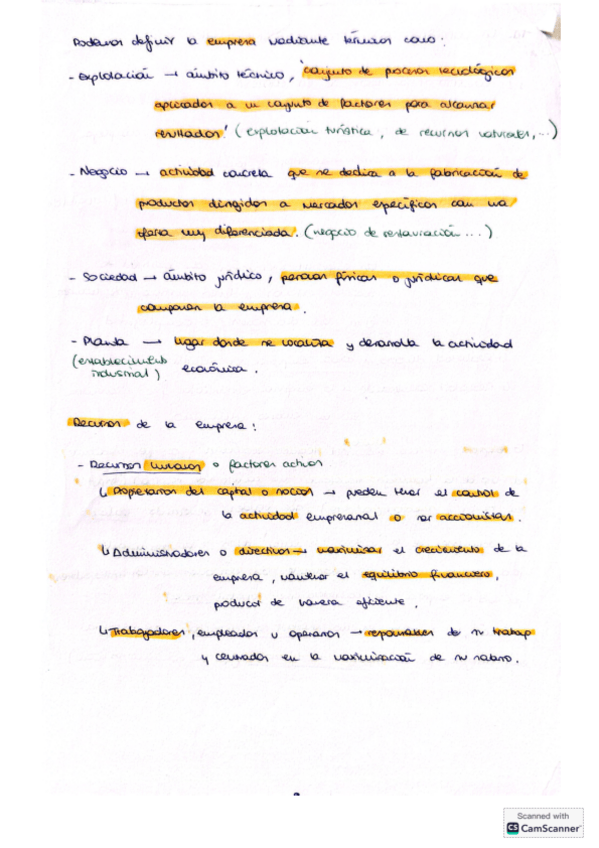 Podemos definir la empresa mediante términos como:
- Explotación → ámbito técnico, 'conjunto de procesos tecnológicos
aplicados a un conjunto de factores para alcanzar
resultados' (explotación turística, de recursos naturales,...)
- Negocio → actividad concreta que se dedica a la fabricación de
productos dirigidos a mercados específicos con una
oferta muy diferenciada. (negocio de restauración...)
- Sociedad → ámbito jurídico, personas físicas o jurídicas que
componen la empresa.
- Planta → lugar donde se localiza y desarrolla la actividad
(establecimiento económica.
industrial)
Recursos de la empresa:
- Recursos humanos o factores activos
↳ Propietarios del capital o socios → pueden tener el control de
la actividad empresarial o ser accionistas.
↳ Administradores o directivos → maximizar el crecimiento de la
empresa, mantener el equilibrio financiero,
producir de manera eficiente.
↳ Trabajadores, empleados u operarios → responsables de su trabajo
y centrados en la maximización de su salario.
Scanned with
CS CamScanner